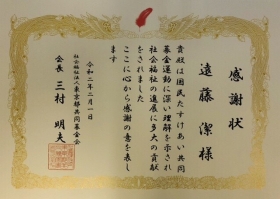 感謝状
遠藤 潔 様
貴殿は国民たすけあい共同
募金運動に深い理解を示され
社会福祉の進展に多大の貢献
をされました
ここに心から感謝の意を表し
ます
令和二年二月一日
社会福祉法人東京都共同募金会
会長 三村 明夫